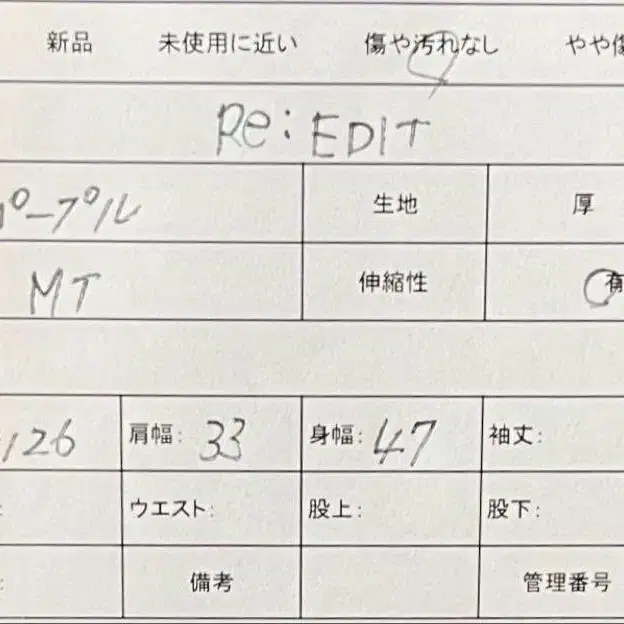 新品 未使用に近い 傷や汚れなし やや傷
Re: EDIT
パープル 生地 厚
MT 伸縮性 有
126 肩幅: 33 身幅: 47 袖丈:
: ウエスト: 股上: 股下:
: 備考 管理番号